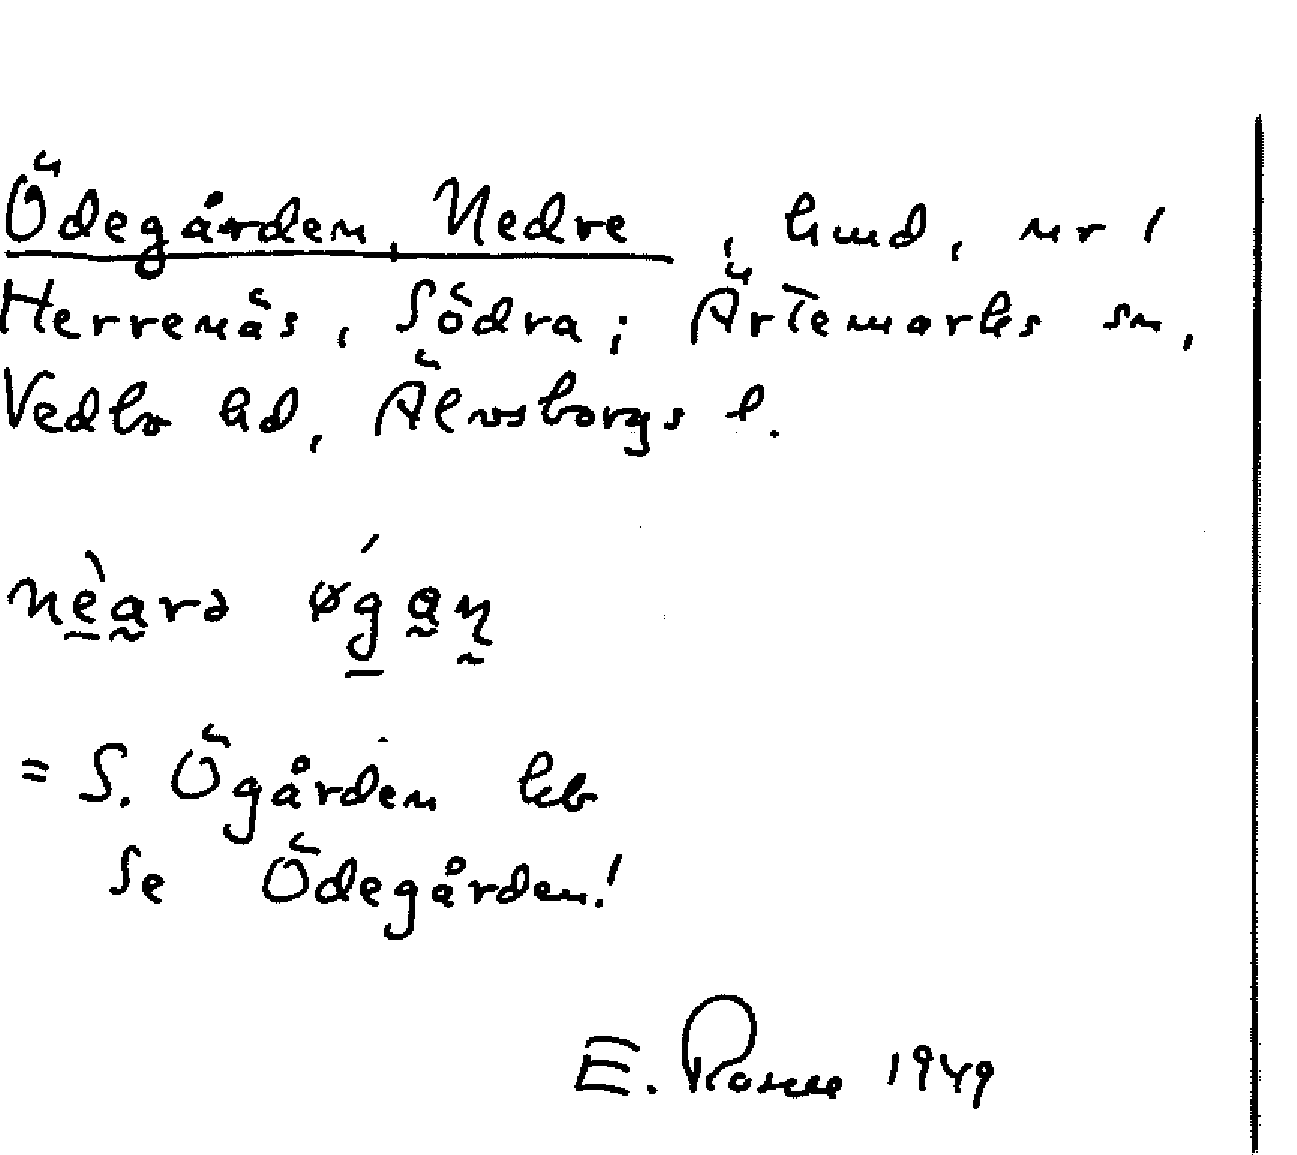 Ödegården, Nedre, hmd, nr 1
Herrenäs, Södra; Ärtemarks sn,
Vedbo hd, Älvsborgs l.
= S. Ögården kb
Se Ödegården!
E. Rosell 1949